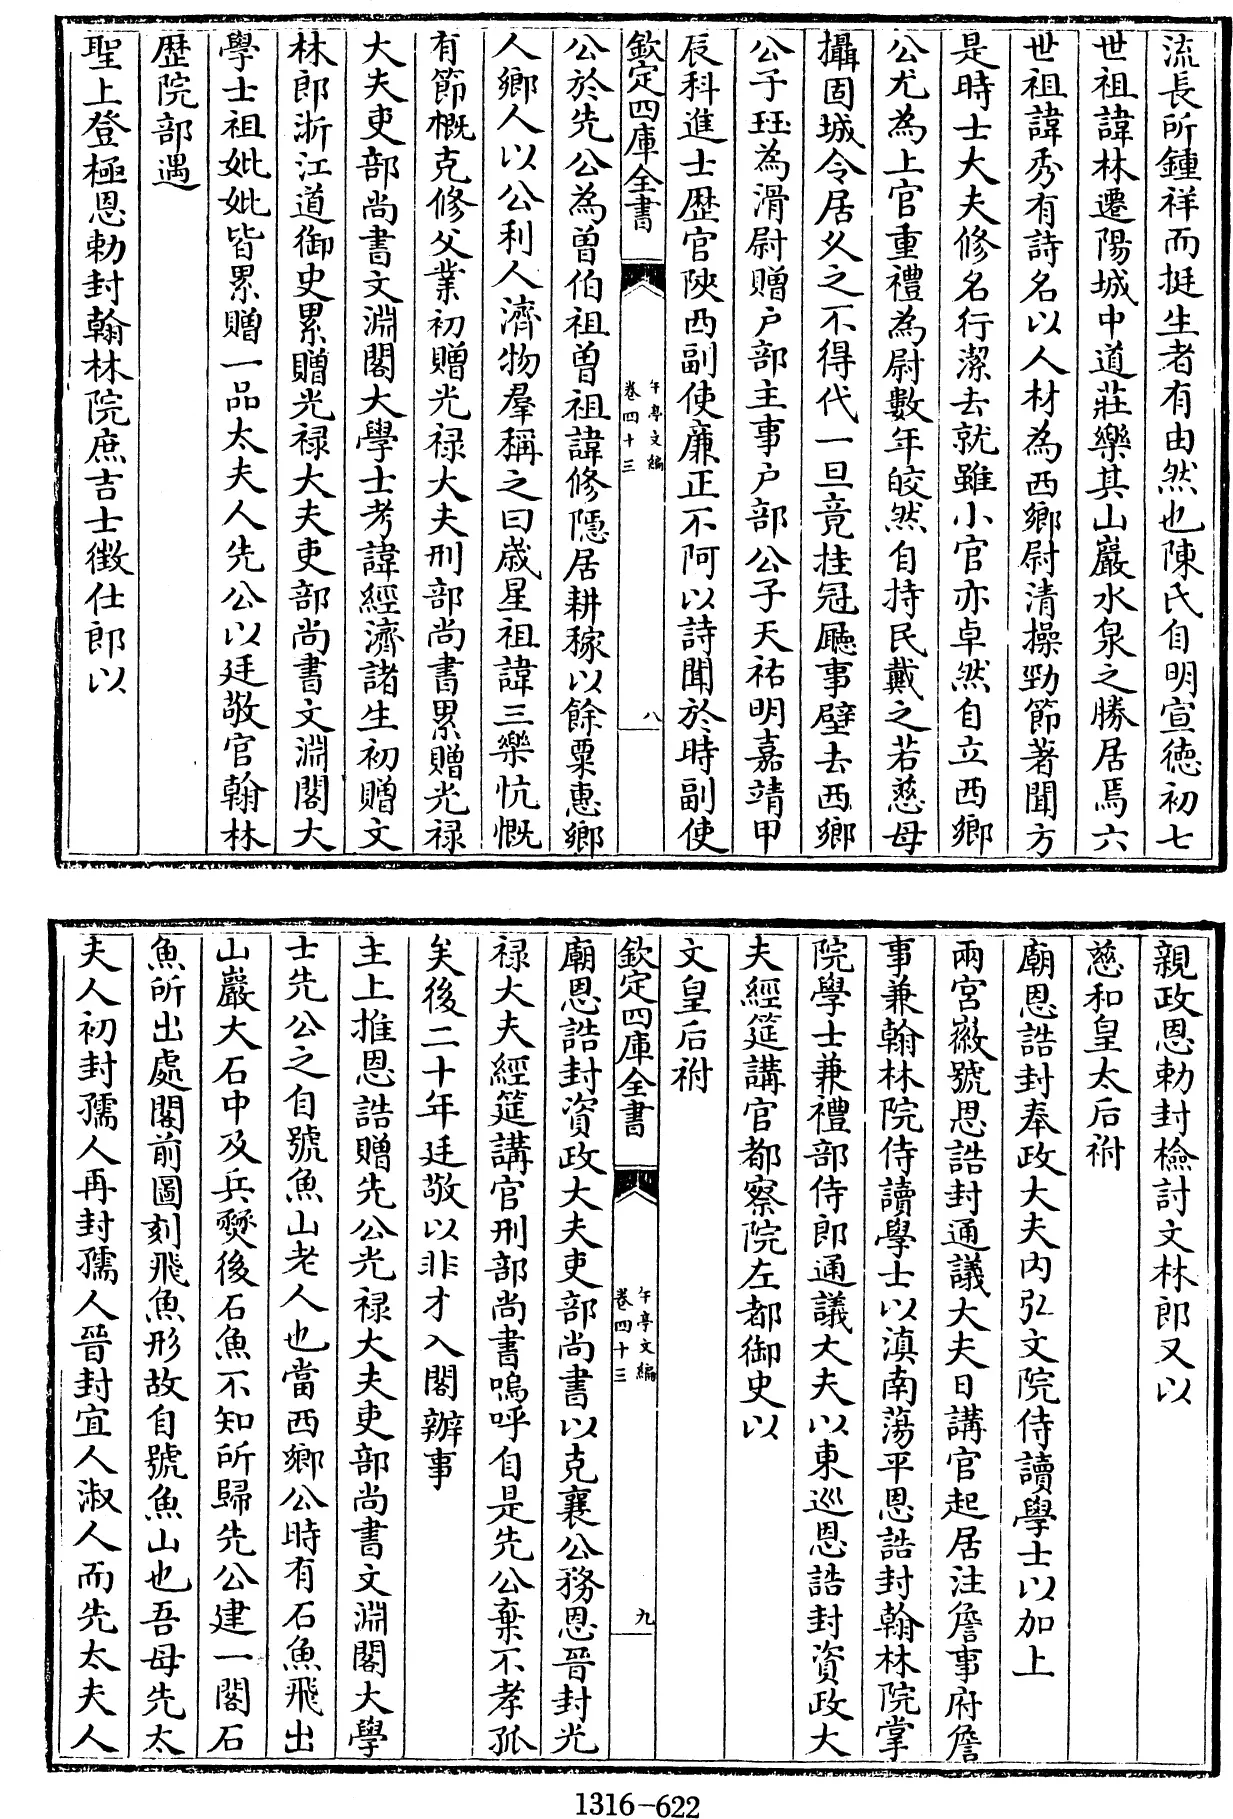 流長所鍾祥而挺生者有由然也陳氏自明宣徳初七
世祖諱林遷陽城中道莊樂其山巖水泉之勝居焉六
世祖諱秀有詩名以人材為西鄉尉清操勁節著聞方
是時士大夫修名行潔去就雖小官亦卓然自立西鄉
公尤為上官重禮為尉數年皎然自持民戴之若慈母
攝固城令居久之不得代一旦竟挂冠廳事壁去西鄉
公子珏為滑尉贈户部主事户部公子天祐明嘉靖甲
辰科進士歴官陜西副使廉正不阿以詩聞於時副使
欽定四庫全書
午亭文編
卷四十三
八
公於先公為曽伯祖曽祖諱修隱居耕稼以餘粟惠鄉
人鄉人以公利人濟物羣稱之曰歲星祖諱三樂忼慨
有節概克修父業初贈光禄大夫刑部尚書累贈光禄
大夫吏部尚書文淵閣大學士考諱經濟諸生初贈文
林郎浙江道御史累贈光禄大夫吏部尚書文淵閣大
學士祖妣妣皆累贈一品太夫人先公以廷敬官翰林
歴院部遇
聖上登極恩勅封翰林院庶吉士徴仕郎以
親政恩勅封檢討文林郎又以
慈和皇太后祔
廟恩誥封奉政大夫内弘文院侍讀學士以加上
兩宮徽號恩誥封通議大夫日講官起居注詹事府詹
事兼翰林院侍讀學士以滇南蕩平恩誥封翰林院掌
院學士兼禮部侍郎通議大夫以東巡恩誥封資政大
夫經筵講官都察院左都御史以
文皇后祔
欽定四庫全書
午亭文編
卷四十三
九
廟恩誥封資政大夫吏部尚書以克襄公務恩晉封光
禄大夫經筵講官刑部尚書嗚呼自是先公棄不孝孤
矣後二十年廷敬以非才入閣辦事
主上推恩誥贈先公光禄大夫吏部尚書文淵閣大學
士先公之自號魚山老人也當西鄉公時有石魚飛出
山巖大石中及兵燹後石魚不知所歸先公建一閣石
魚所出處閣前圖刻飛魚形故自號魚山也吾母先太
夫人初封孺人再封孺人晉封宜人淑人而先太夫人
1316-622